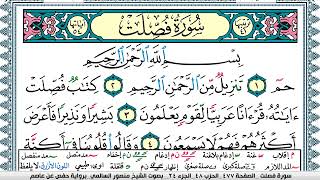 سُورَةُ فُصِّلَتْ
بِسْمِ اللَّهِ الرَّحْمَٰنِ الرَّحِيمِ
حمٓ ١ تَنزِيلٌ مِّنَ الرَّحْمَٰنِ الرَّحِيمِ ٢ كِتَٰبٌ فُصِّلَتْ
ءَايَٰتُهُۥ قُرْءَانًا عَرَبِيًّا لِّقَوْمٍ يَعْلَمُونَ ٣ بَشِيرًا وَنَذِيرًا فَأَعْرَضَ
أَكْثَرُهُمْ فَهُمْ لَا يَسْمَعُونَ ٤ وَقَالُوا۟ قُلُوبُنَا فِىٓ أَكِنَّةٍ
سورة فصلت الصفحة ٤٧٧ الحزب ٤٨ الجزء ٢٤ بصوت الشيخ منصور السالمي برواية حفص عن عاصم